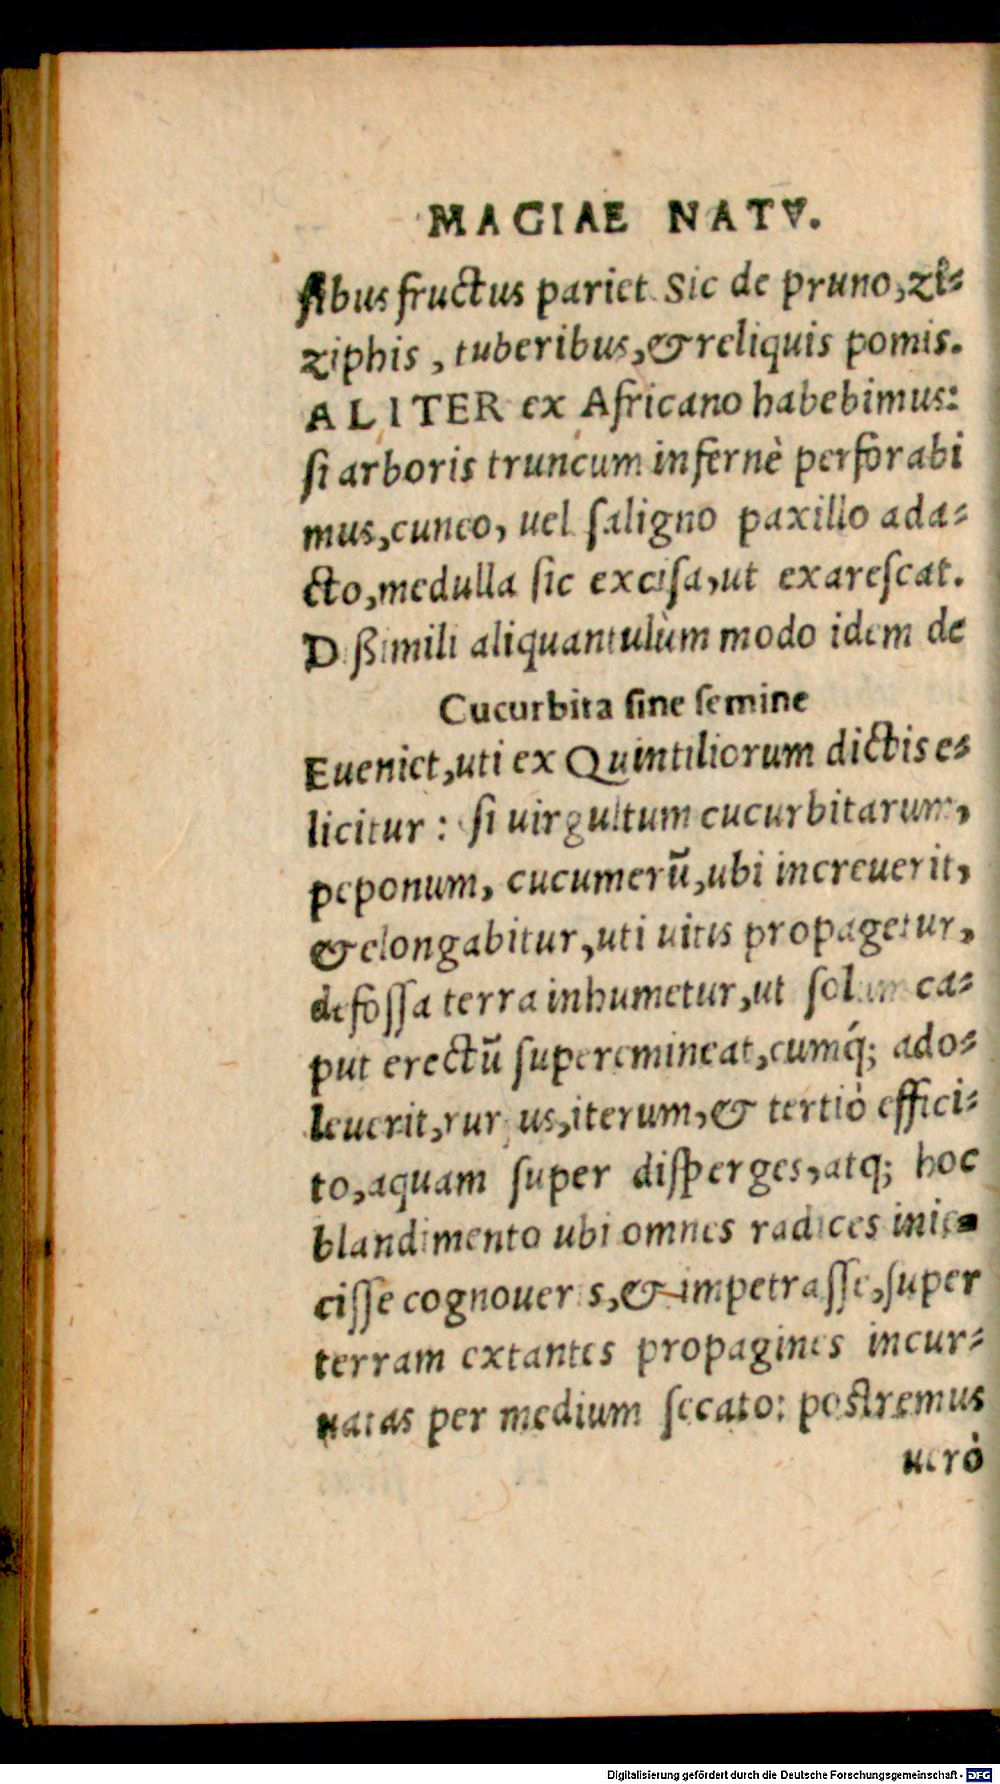 MAGIAE NATV.
sibus fructus pariet. Sic de pruno, zi-
ziphis, tuberibus, & reliquis pomis.
ALITER ex Africano habebimus:
si arboris truncum infernè perforabi
mus, cuneo, uel saligno paxillo ada-
cto, medulla sic excisa, ut exarescat.
Dißimili aliquantulùm modo idem de
Cucurbita sine semine
Eueniet, uti ex Quintiliorum dictis e-
licitur: si uirgultum cucurbitarum,
peponum, cucumerū, ubi increuerit,
& elongabitur, uti uitis propagetur,
defossa terra inhumetur, ut solum ca-
put erectū superemineat, cumq́; ado-
leuerit, rursus, iterum, & tertiò effici-
to, aquam super disperges, atq; hoc
blandimento ubi omnes radices inie-
cisse cognoueris, & impetrasse, super
terram extantes propagines incur-
uatas per medium secato: postremus
uerò
Digitalisierung gefördert durch die Deutsche Forschungsgemeinschaft - DFG